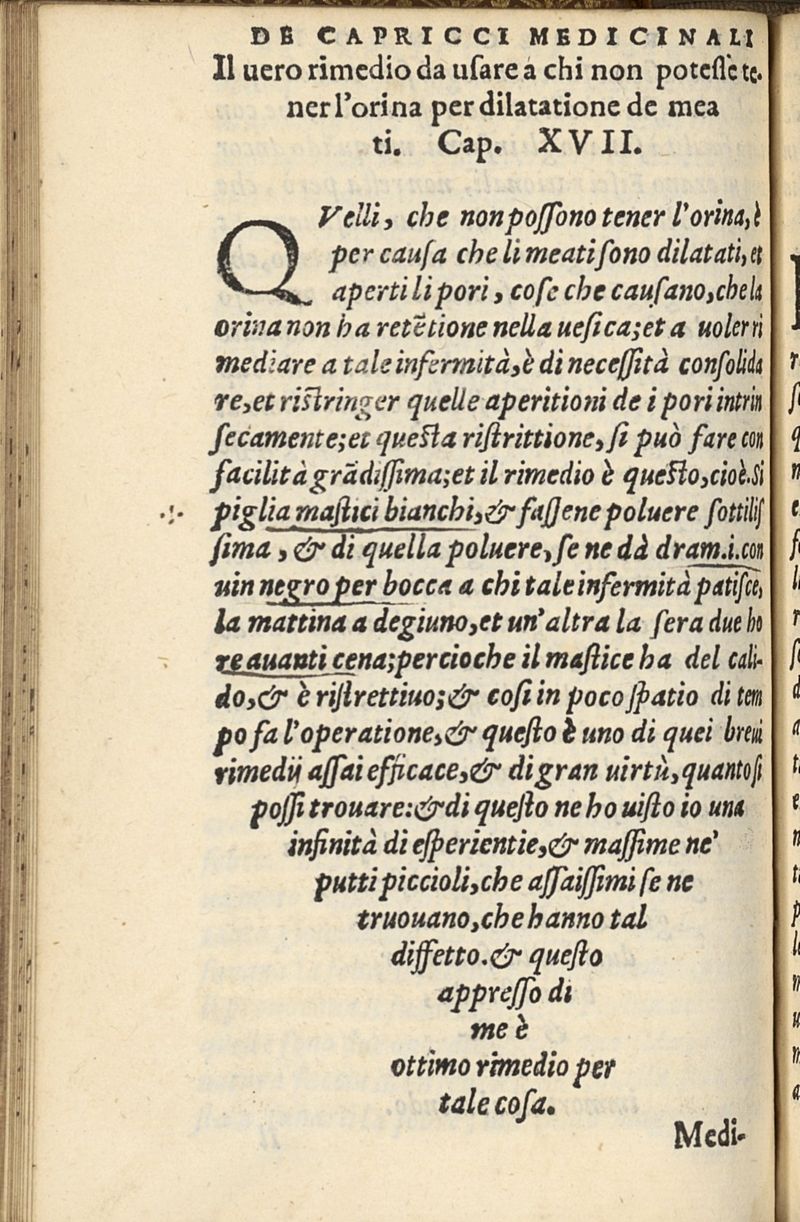 DE CAPRICCI MEDICINALI
Il uero rimedio da uſare a chi non poteſſe te-
ner l'orina per dilatatione de mea
ti. Cap. XVII.
QVelli, che non poſſono tener l'orina, è
per cauſa che li meati ſono dilatati, et
aperti li pori, coſe che cauſano, che la
orina non ha retẽtione nella ueſica; et a uoler ri
mediare a tale infermità, è di neceſſità conſolida
re, et riſtringer quelle aperitioni de i pori intrin
ſecamente; et queſta riſtrittione, ſi può fare con
facilità grãdiſſima; et il rimedio è queſto, cioè. Si
piglia maſtici bianchi, & faſſene poluere ſottiliſ
ſima, & di quella poluere, ſe ne dà dram.i. con
uin negro per bocca a chi tale infermità patiſce,
la mattina a degiuno, et un'altra la ſera due ho
re auanti cena; percioche il maſtice ha del cali-
do, & è riſtrettiuo; & coſi in poco ſpatio di tem
po fa l'operatione, & queſto è uno di quei breui
rimedij aſſai efficace, & di gran uirtù, quanto ſi
poſſi trouare: & di queſto ne ho uiſto io una
infinità di eſperientie, & maſſime ne'
putti piccioli, che aſſaiſſimi ſe ne
truouano, che hanno tal
diffetto. & queſto
appreſſo di
me è
ottimo rimedio per
tale coſa.
Medi-